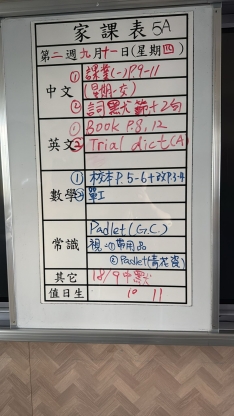 家課表 5A
第二週九月十一日(星期四)
中文 ① 課業(一)P.9-11
(星期一交)
② 詞默 節+2句
英文 ① Book P.8, 12
② Trial dict(A)
數學 ① 校本P.5-6+改P.3-4
②
常識 Padlet(G.C)
視:①帶用品
②Padlet(青花瓷)
其它 18/9中默
值日生 10 11